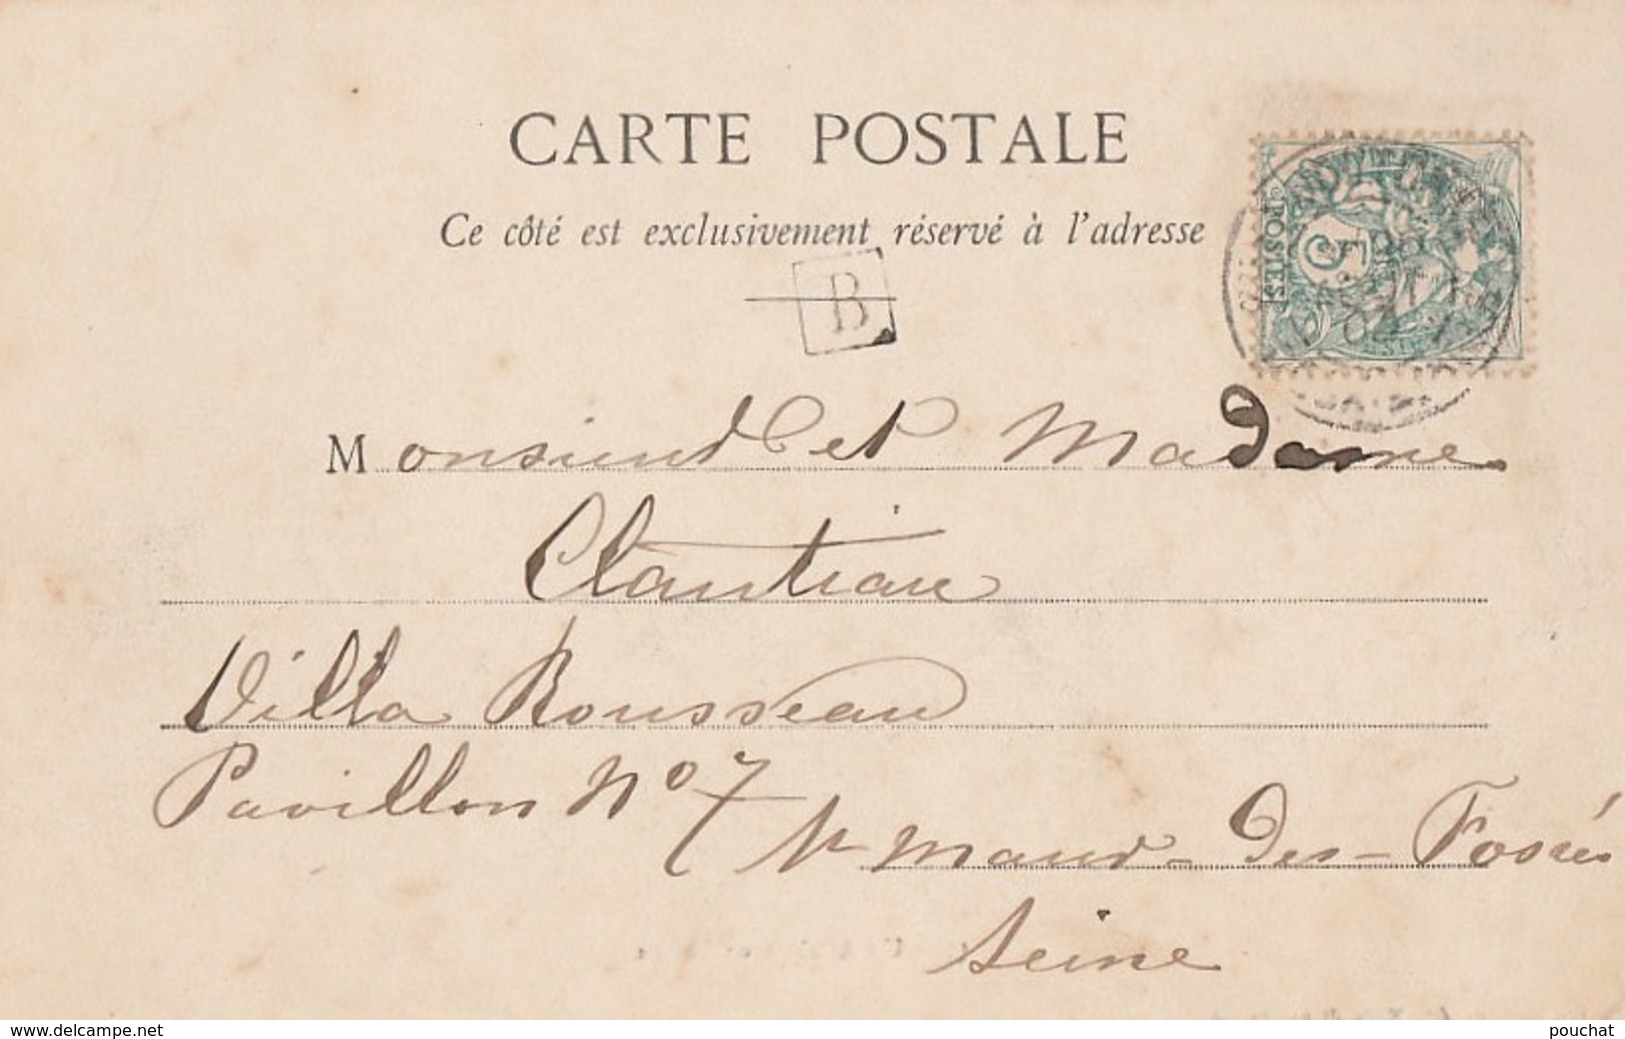 CARTE POSTALE
Ce côté est exclusivement réservé à l'adresse
B
POSTES
5
Monsieur et Madame
Villa Rousseau
Pavillon No 7
St Maur-Des-Fossés
Seine
www.delcampe.net
pouchat